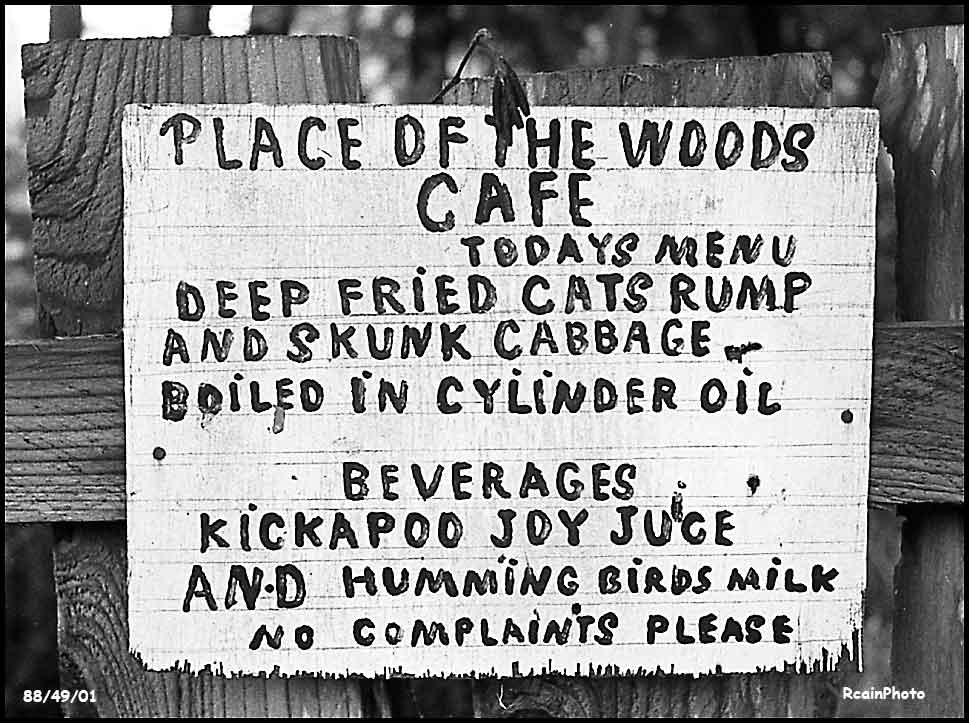 PLACE OF THE WOODS
CAFE
TODAYS MENU
DEEP FRiED CATS RUMP
AND SKUNK CABBAGE
BOiLED iN CYLiNDER OiL
BEVERAGES
KiCKAPOO JOY JUiCE
AND HUMMiNG BiRDS MiLK
NO COMPLAiNTS PLEASE
88/49/01
RcainPhoto